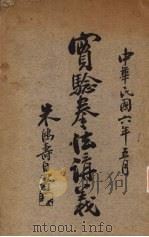 中華民國六年五月
實驗拳法講義
朱鴻壽自題